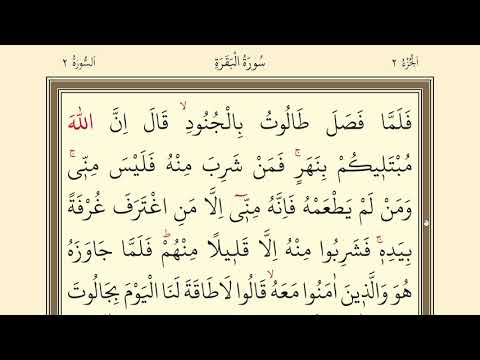 اَلْجُزْءُ ٢ سُورَةُ الْبَقَرَةِ اَلسُّورَةُ ٢
فَلَمَّا فَصَلَ طَالُوتُ بِالْجُنُودِۙ قَالَ اِنَّ اللّٰهَ
مُبْتَل۪يكُمْ بِنَهَرٍۚ فَمَنْ شَرِبَ مِنْهُ فَلَيْسَ مِنّ۪يۚ
وَمَنْ لَمْ يَطْعَمْهُ فَاِنَّهُ مِنّ۪ٓي اِلَّا مَنِ اغْتَرَفَ غُرْفَةً
بِيَدِه۪ۚ فَشَرِبُوا مِنْهُ اِلَّا قَل۪يلًا مِنْهُمْۜ فَلَمَّا جَاوَزَهُ
هُوَ وَالَّذ۪ينَ اٰمَنُوا مَعَهُۙ قَالُوا لَا طَاقَةَ لَنَا الْيَوْمَ بِجَالُوتَ